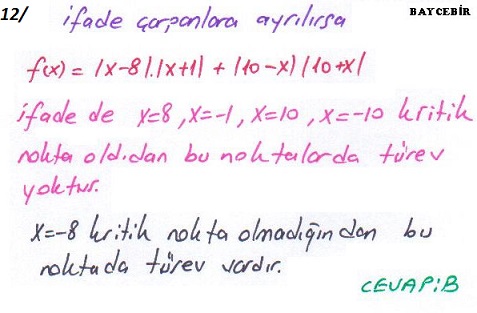 12/ ifade çarpanlara ayrılırsa BAYCEBİR
f(x) = |x-8|.|x+1| + |10-x||10+x|
ifade de x=8, x=-1, x=10, x=-10 kritik
nokta oldıdan bu noktalarda türev
yoktur.
x=-8 kritik nokta olmadığından bu
noktada türev vardır.
CEVAP:B